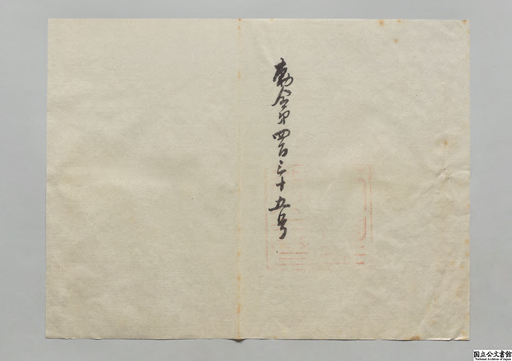 勅令第四百三十五号
国立公文書館
National Archives of Japan